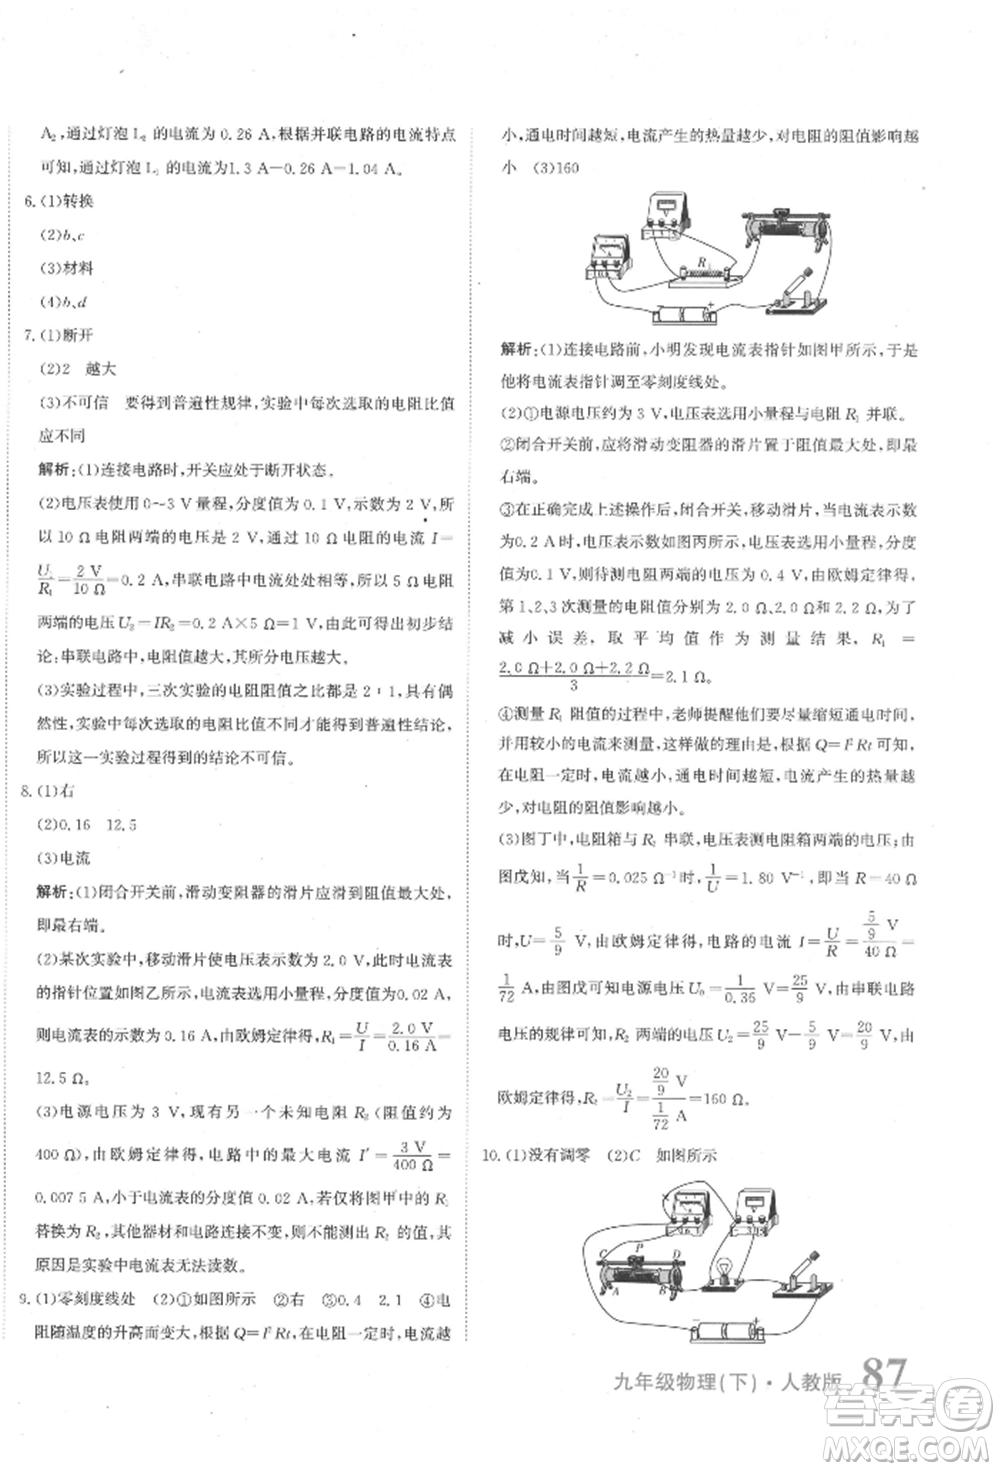 A₂,通过灯泡 L₂ 的电流为 0.26 A,根据并联电路的电流特点
可知,通过灯泡 L₁ 的电流为1.3 A－0.26 A＝1.04 A。
6. (1)转换
(2)b、c
(3)材料
(4)b、d
7. (1)断开
(2)2 越大
(3)不可信 要得到普遍性规律,实验中每次选取的电阻比值
应不同
解析:(1)连接电路时,开关应处于断开状态。
(2)电压表使用 0～3 V 量程,分度值为 0.1 V,示数为 2 V,所
以 10 Ω 电阻两端的电压是 2 V,通过该电阻的电流 I＝
U₁/R₁＝2 V/10 Ω＝0.2 A,串联电路中电流处处相等,所以 5 Ω 电阻
两端的电压 U₂＝IR₂＝0.2 A×5 Ω＝1 V;可以得出初步结
论:串联电路中,电阻值越大,分得电压越大。
(3)实验过程中,三次实验的电阻阻值之比均是 2∶1,具有偶
然性,实验中每次选取的电阻比值不同才能得到普遍性结论,
所以这一实验过程得出的结论不可信。
8. (1)右
(2)0.16 12.5
(3)电流
解析:(1)闭合开关前,滑动变阻器的滑片应滑到阻值最大处,
即最右端。
(2)某次实验中,移动滑片使电压表示数为 2.0 V,此时电流表
的指针位置如图乙所示,电流表选用小量程,分度值为 0.02 A,
则电流表的示数为 0.16 A,由欧姆定律得,R₁＝U/I＝2.0 V/0.16 A＝
12.5 Ω。
(3)电源电压为 3 V,现有另一个未知电阻 R₂(阻值约为
400 Ω),由欧姆定律得,电路中的最大电流约 I′＝3 V/400 Ω＝
0.007 5 A,小于电流表的分度值 0.02 A,若仅将图甲中的 R₁
替换为 R₂,其他器材和电路连接不变,则不能测出 R₂ 的值,其
原因是实验中电流表无法读数。
9. (1)零刻度线处 (2)①如图所示 ②右 ③0.4 2.1 ④电
阻随温度的升高而变大,根据 Q＝I²Rt,在电阻一定时,电流越
小,通电时间越短,电流产生的热量越少,对电阻的阻值影响越
小 (3)160
R₁
解析:(1)连接电路前,小明发现电流表指针如图甲所示,于是
他将电流表指针调至零刻度线处。
(2)①电源电压约为 3 V,电压表选用小量程与电阻 R₁ 并联。
②闭合开关前,应将滑动变阻器的滑片置于阻值最大处,即最
右端。
③在正确完成上述操作后,闭合开关,移动滑片,当电流表示数
为0.2 A时,电压表示数如图丙所示,电压表选用小量程,分度
值为0.1 V,则待测电阻两端的电压为 0.4 V,由欧姆定律得,
第 1、2、3 次测量的电阻值分别为 2.0 Ω、2.0 Ω 和 2.2 Ω,为了
减小误差,取平均值作为测量结果,R₁＝
(2.0 Ω＋2.0 Ω＋2.2 Ω)/3＝2.1 Ω。
④测量 R₁ 阻值的过程中,老师提醒他们要尽量缩短通电时间,
并用较小的电流来测量,这样做的理由是,根据 Q＝I²Rt 可知,
在电阻一定时,电流越小,通电时间越短,电流产生的热量越
少,对电阻的阻值影响越小。
(3)图丁中,电阻箱与 R₂ 串联,电压表测电阻箱两端的电压,由
图戊可知,当 1/R＝0.025 Ω⁻¹时,1/U＝1.80 V⁻¹,即当 R＝40 Ω
时,U＝5/9 V,由欧姆定律得,电路的电流 I＝U/R＝(5/9 V)/40 Ω＝
1/72 A,由图戊可知电源电压 U₀＝1/0.36 V＝25/9 V,由串联电路
电压的规律可知,R₂ 两端的电压 U₂＝25/9 V－5/9 V＝20/9 V,由
欧姆定律得,R₂＝U₂/I＝(20/9 V)/(1/72 A)＝160 Ω。
10. (1)没有调零 (2)C 如图所示
C P D
A B
九年级物理(下)·人教版 87
答案圈
MXQE.COM